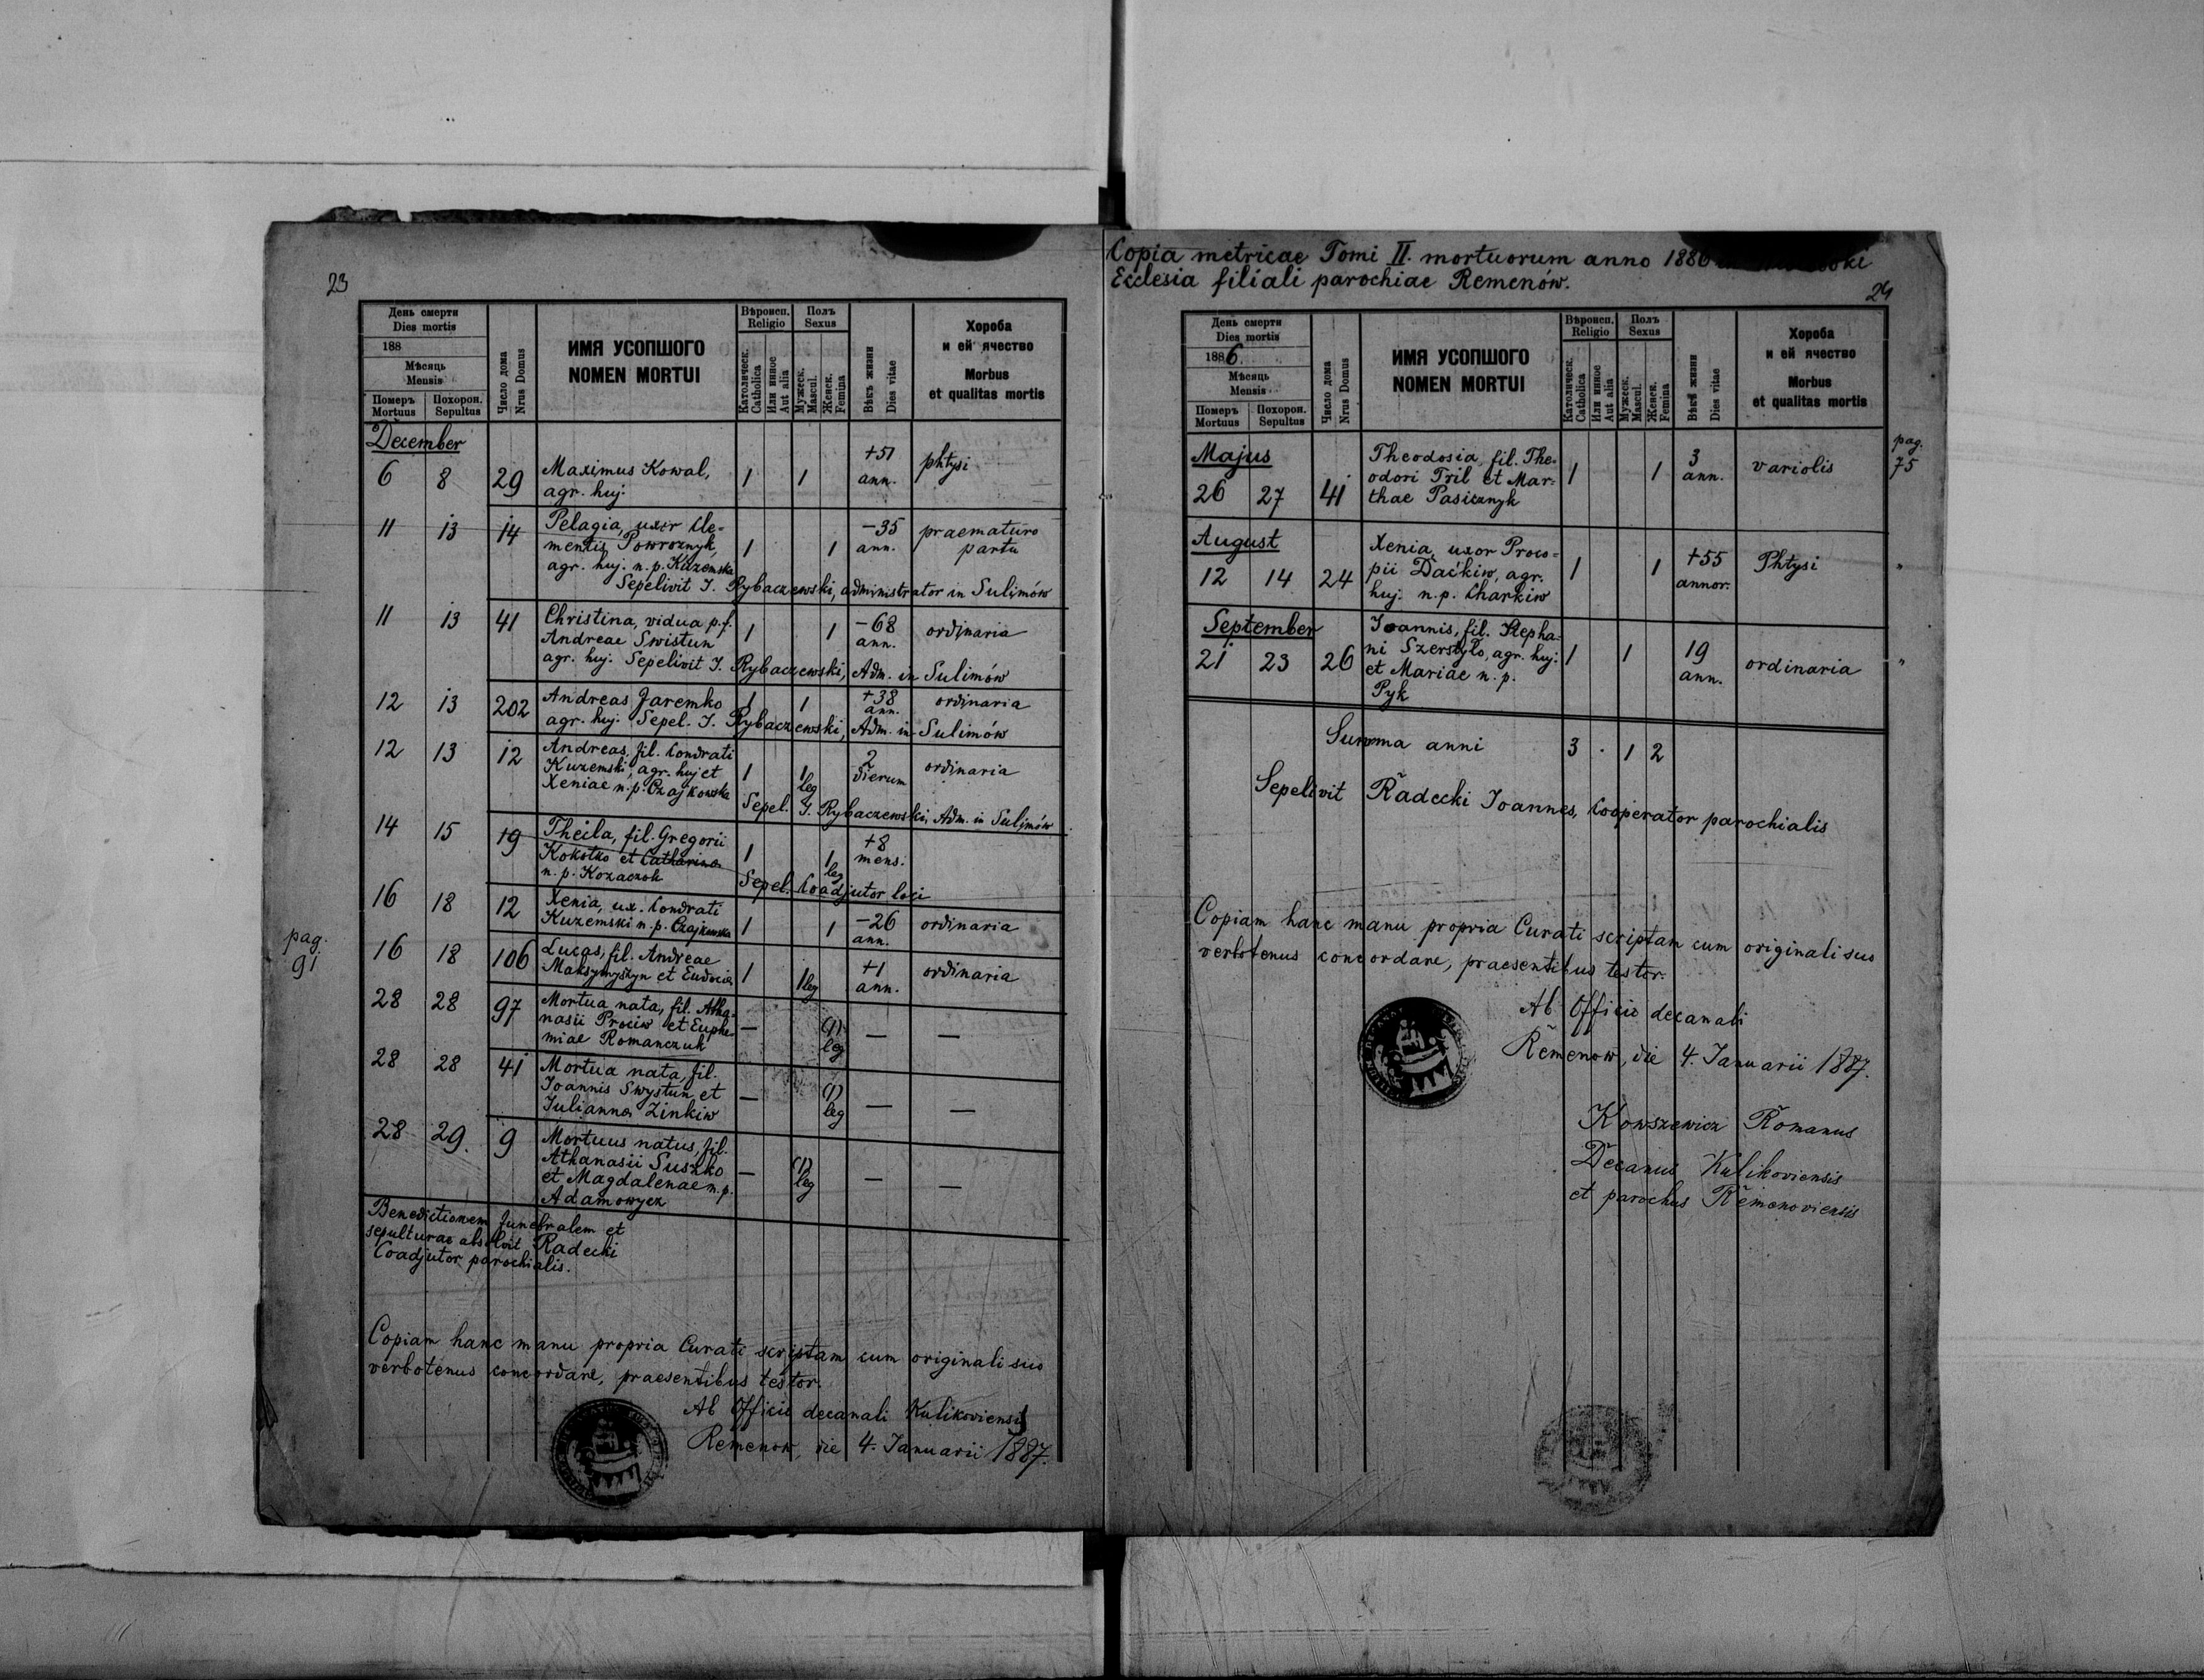 23
День смерти
Dies mortis
188
Мѣсяць
Mensis
Померъ
Mortuus
Похорон.
Sepultus
Число дома
Nrus Domus
ИМЯ УСОПШОГО
NOMEN MORTUI
Вѣроисп.
Religio
Католическ.
Catholica
Или инное
Aut alia
Полъ
Sexus
Мужеск.
Mascul.
Женск.
Femina
Вѣкъ жизни
Dies vitae
Хороба
и ей ячество
Morbus
et qualitas mortis
December
6 8 29 Maximus Kowal, 1 1 +51 ann. phtysi
agr. huj.
11 13 14 Pelagia, uxor Cle=
mentis Powroznyk, 1 1 -35 ann. praematuro partu
agr. huj. n. p. Kuzemska
Sepelivit J. Rybaczewski, administrator in Sulimów
11 13 41 Christina, vidua p. f. 1 1 -68 ann. ordinaria
Andreae Swistun
agr. huj. Sepelivit J. Rybaczewski, Adm. in Sulimów
12 13 202 Andreas Jaremko 1 1 +38 ann. ordinaria
agr. huj. Sepel. J. Rybaczewski, Adm. in Sulimów
12 13 12 Andreas, fil. Condrati
Kuzemski, agr. huj et 1 1 leg 2 dierum ordinaria
Xeniae n. p. Czajkowska
Sepel. J. Rybaczewski, Adm. in Sulimów
14 15 19 Thecla, fil. Gregorii
Kokotko et Catharina 1 1 leg +8 mens.
n. p. Kozaczok
Sepel. Coadjutor loci
16 18 12 Xenia, ux. Condrati
Kuzemski n. p. Czajkowska 1 1 -26 ann. ordinaria
pag.
91
16 18 106 Lucas, fil. Andreae
Maksymyszyn et Eudocia 1 1 leg +1 ann. ordinaria
28 28 97 Mortua nata, fil. Atha=
nasii Prociw et Euphe= — (1) leg — —
miae Romanczuk
28 28 41 Mortua nata, fil.
Joannis Swystun et — (1) leg — —
Julianna Zinkiw
28 29. 9 Mortuus natus, fil.
Athanasii Suszko — (1) leg — —
et Magdalenae n. p.
Adamowycz
Benedictionem funebralem et
sepulturae absolvit Radecki
Coadjutor parochialis.
Copiam hanc manu propria Curati scriptam cum originali suo
verbotenus concordare, praesentibus testor.
Ab Officio decanali Kulikoviensi
Remenow, die 4. Januarii 1887.
Copia metricae Tomi II. mortuorum anno 1886
Ecclesia filiali parochiae Remenów.
24
День смерти
Dies mortis
1886.
Мѣсяць
Mensis
Померъ
Mortuus
Похорон.
Sepultus
Число дома
Nrus Domus
ИМЯ УСОПШОГО
NOMEN MORTUI
Вѣроисп.
Religio
Католическ.
Catholica
Или инное
Aut alia
Полъ
Sexus
Мужеск.
Mascul.
Женск.
Femina
Вѣкъ жизни
Dies vitae
Хороба
и ей ячество
Morbus
et qualitas mortis
pag.
75
Majus
26 27 41 Theodosia, fil. The=
odori Tril et Mar= 1 1 3 ann. variolis
thae Pasicznyk
August
12 14 24 Xenia, uxor Proco=
pii Daćkiw, agr. 1 1 +55 annor. Phtysi "
huj. n. p. Charkiw
September
21 23 26 Joannis, fil. Stepha=
ni Szerstyło, agr. huj. 1 1 19 ann. ordinaria "
et Mariae n. p.
Pyk
Summa anni 3 . 1 2
Sepelivit Radecki Joannes, Cooperator parochialis
Copiam hanc manu propria Curati scriptam cum originali suo
verbotenus concordare, praesentibus testor.
Ab Officio decanali
Remenow, die 4. Januarii 1887.
Kowszewicz Romanus
Decanus Kulikoviensis
et parochus Remenoviensis